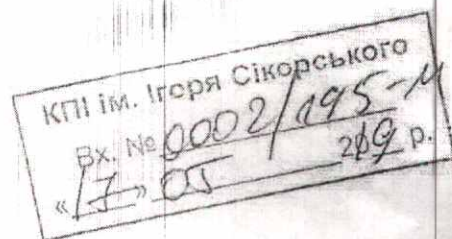 КПІ ім. Ігоря Сікорського
Вх. № 0002/195-м
«17» 05 2019 р.